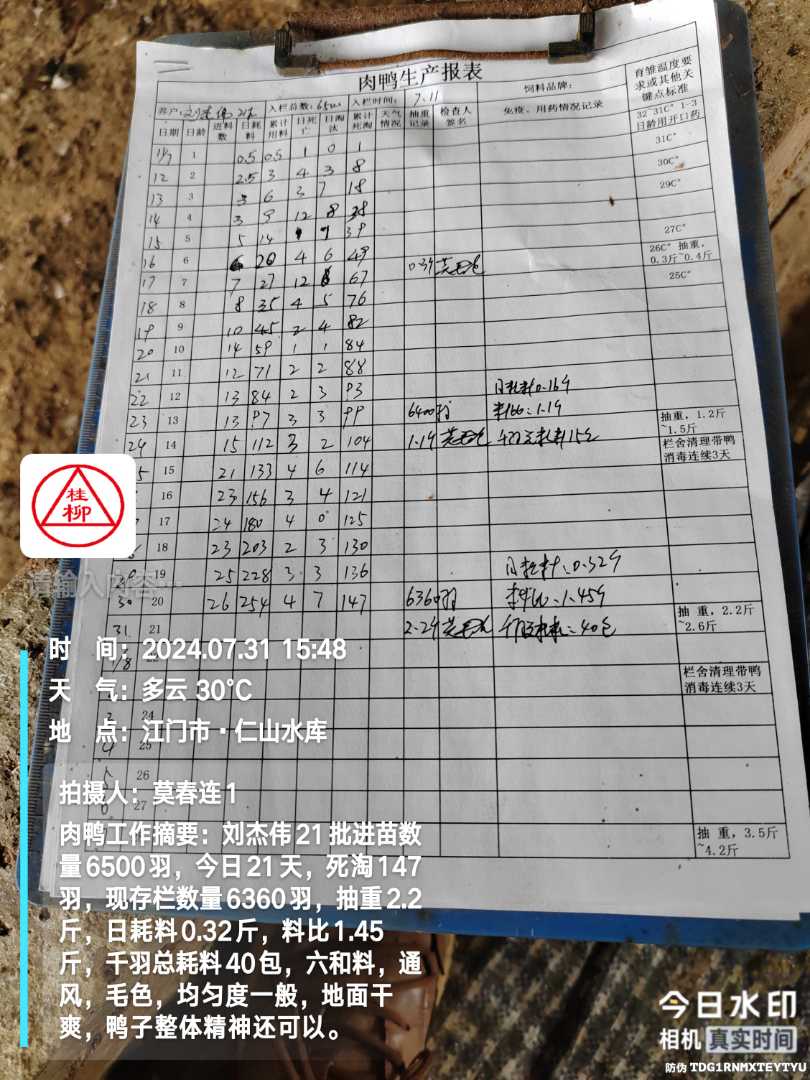 肉鸭生产报表
养户: 刘杰伟 21批 入栏总数: 6500 入栏时间: 7.11 饲料品牌: 育雏温度要求或其他关键点标准
日期 日龄 进料数 日耗料 累计用料 日死亡 日淘汰 累计死淘 天气情况 抽重记录 检查人签名 免疫、用药情况记录 32~31C° 1-3日龄用开口药
11/7 1 0.5 0.5 1 0 1 31C°
12 2 2.5 3 4 3 8 30C°
13 3 3 6 3 7 18 29C°
14 4 3 9 12 8 38
15 5 5 14 39 27C°
16 6 6 20 4 6 49 0.39 26C° 抽重, 0.3斤~0.4斤
17 7 7 27 12 67 25C°
18 8 8 35 4 5 76
19 9 10 45 2 4 82
20 10 14 59 1 1 84
21 11 12 71 2 2 88
22 12 13 84 2 3 93 日耗料0.16斤
23 13 13 97 3 3 99 6400羽 料比: 1.1斤 抽重, 1.2斤~1.5斤
24 14 15 112 3 2 104 1.1斤 千羽总耗料15包 栏舍清理带鸭消毒连续3天
5 15 21 133 4 6 114
16 23 156 3 4 121
17 24 180 4 0 125
18 23 203 2 3 130
19 25 228 3 3 136 日耗料: 0.32斤
30 20 26 254 4 7 147 6360羽 料比: 1.45斤
31 21 2.2斤 千羽总耗料: 40包 抽重, 2.2斤~2.6斤
1/8 栏舍清理带鸭消毒连续3天
3 24
4 25
26
27
抽重, 3.5斤~4.2斤
桂柳
请输入内容...
时 间: 2024.07.31 15:48
天 气: 多云 30℃
地 点: 江门市·仁山水库
拍摄人: 莫春连1
肉鸭工作摘要: 刘杰伟21批进苗数
量6500羽, 今日21天, 死淘147
羽, 现存栏数量6360羽, 抽重2.2
斤, 日耗料0.32斤, 料比1.45
斤, 千羽总耗料40包, 六和料, 通
风, 毛色, 均匀度一般, 地面干
爽, 鸭子整体精神还可以。
今日水印
相机 真实时间
防伪 TDG1RNMXTEYTYU